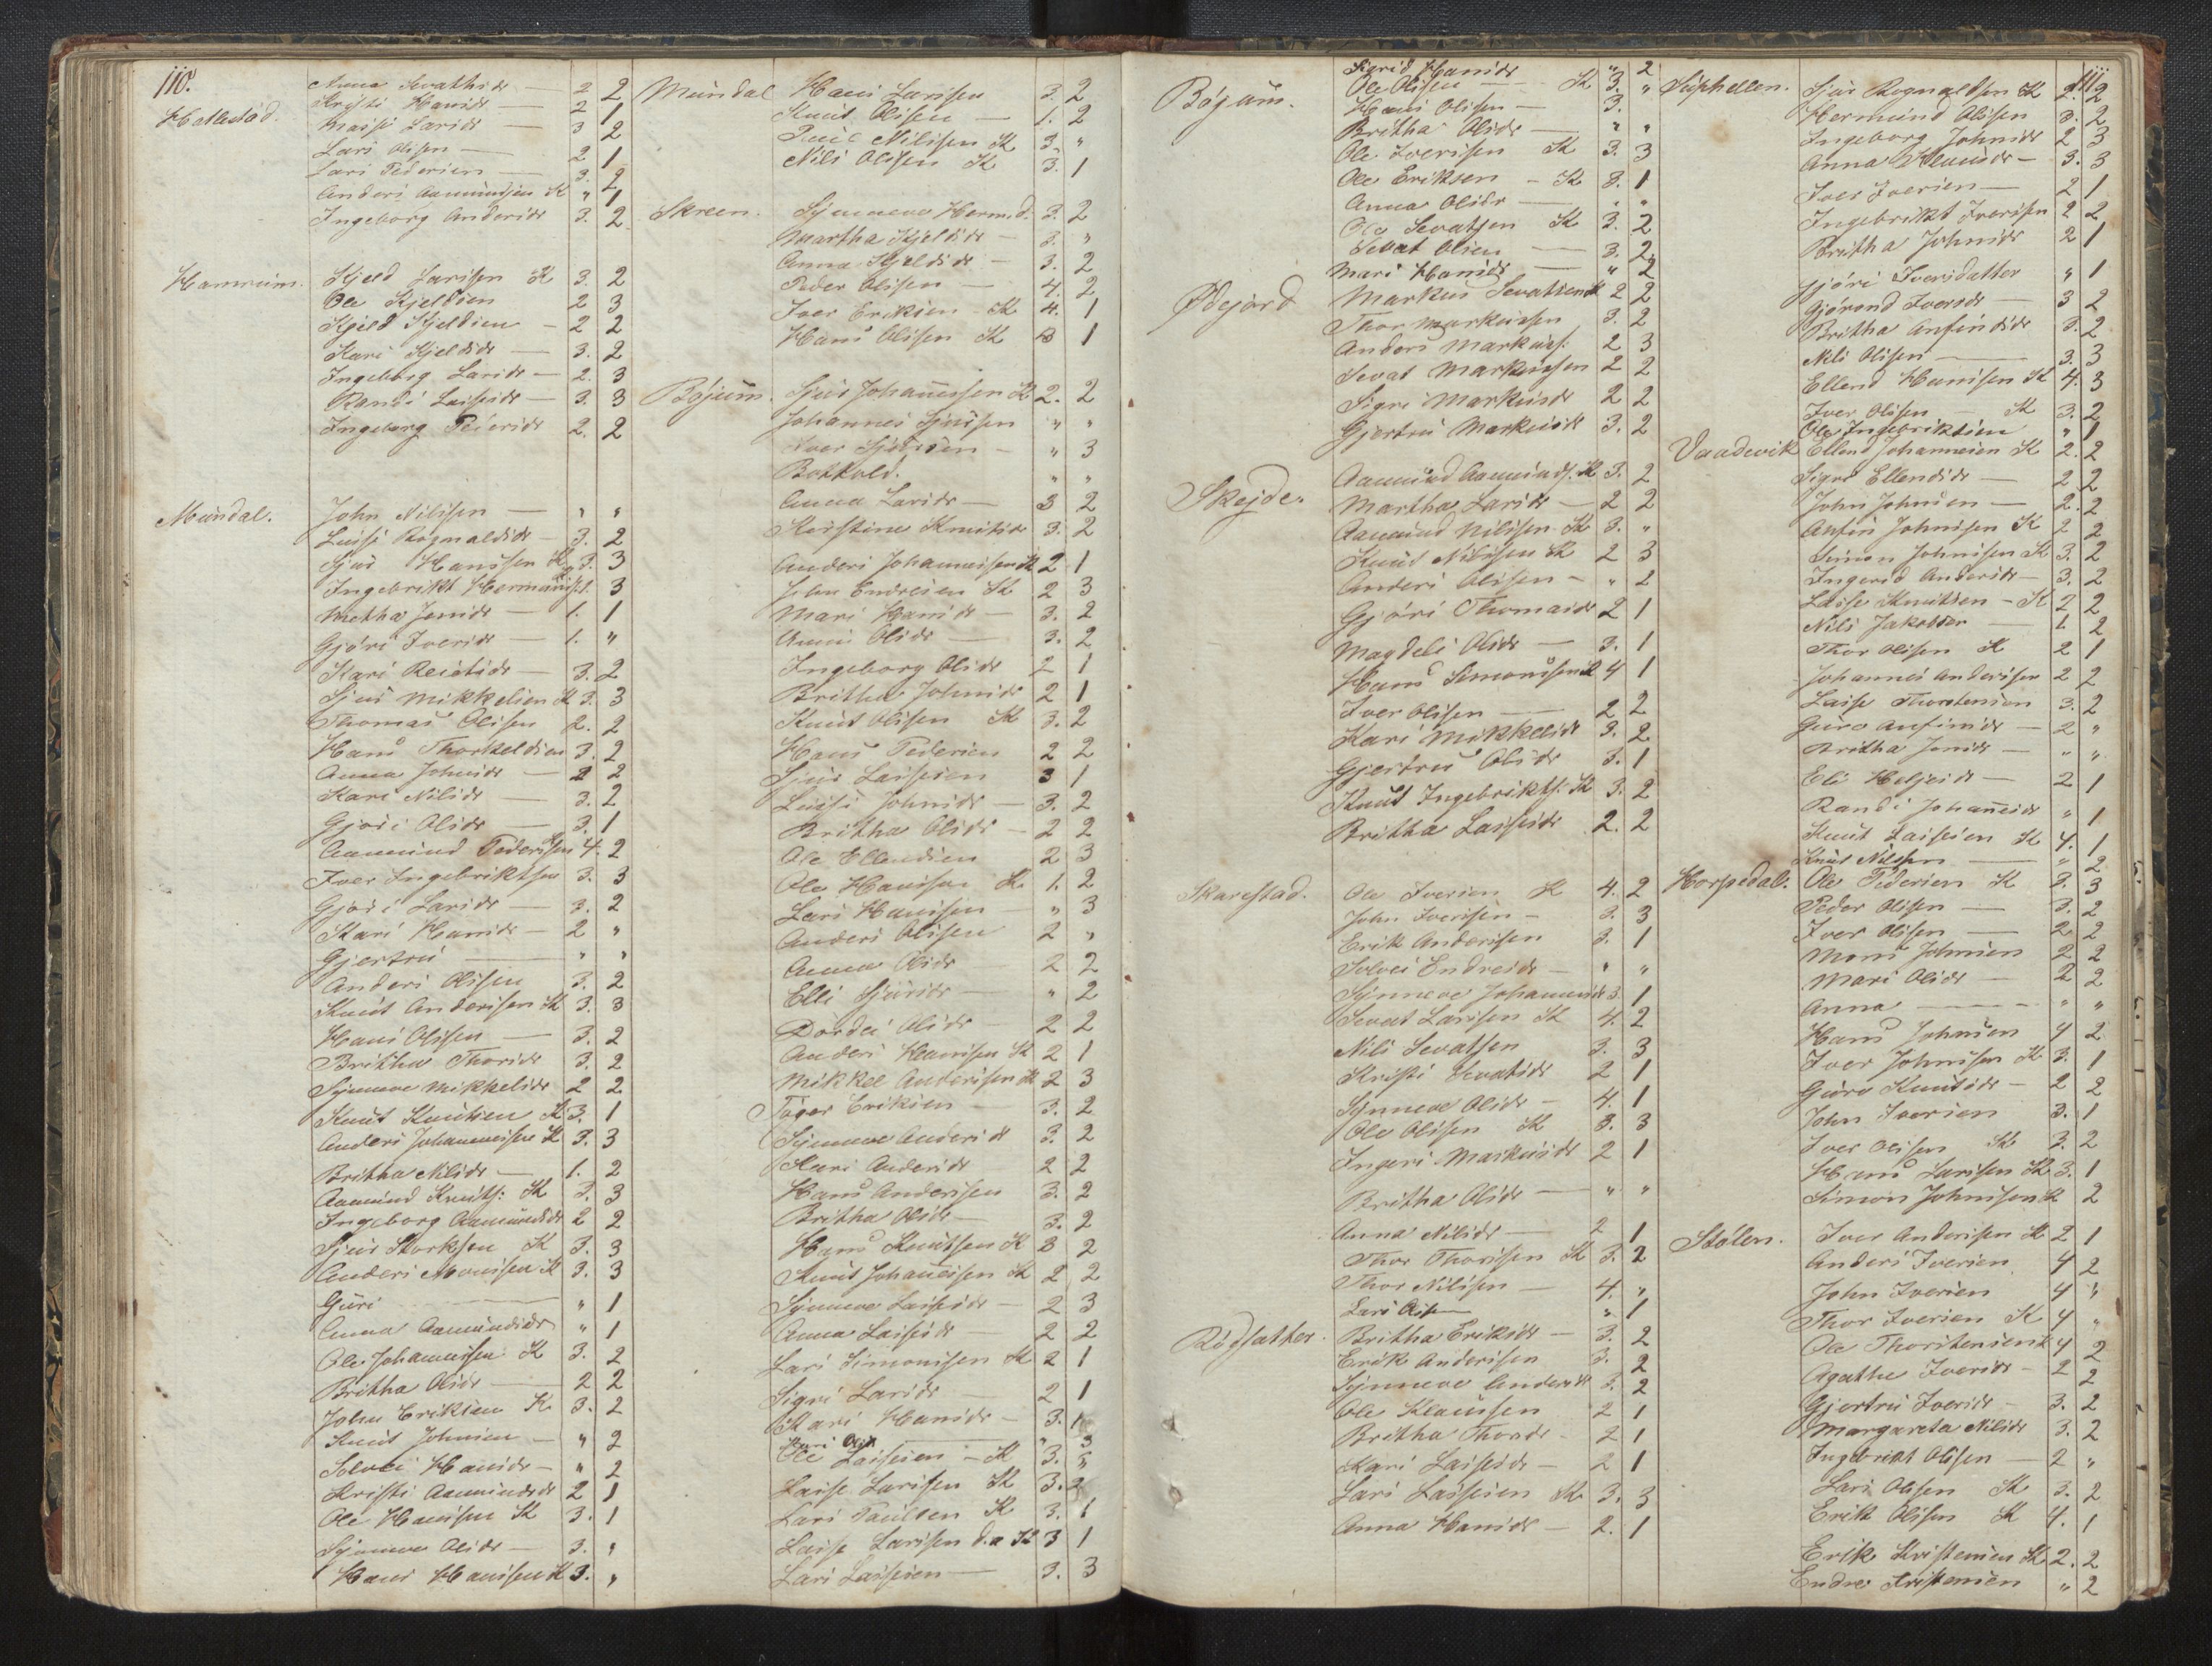 110.
Anna Sevathsdr — 2 2
Hallestad. Kristi Hansdr — 2 1
Marsi Larsdr — 3 2
Lars Olsen — 2 1
Lars Pedersen — 3. 2
Anders Aamundsen K " 1
Ingeborg Andersdr 3. 2
Hamrum. Kjeld Larsen K 3. 2
Ole Kjeldsen 2 3
Kjeld Kjeldsen — 2 2
Kari Kjeldsdr — 3. 2
Ingeborg Larsdr — 2. 3
Randi Lassesdr — 3. 3
Ingeborg Pedersdr 2. 2
Mundal. John Nilssen — " "
Rognaldsdr — 3. 2
Sjur Hanssen K 3. 3
Ingebrikt Hermunds. 1. 3
Metha Jensdr — 1. 1
Gjöri Iversdr — 1. "
Kari — 3. 2
Sjur Mikkelsen K 3. 3
Thomas Olssen 2. 2
Hans Thorkeldsen 3. 2
Anna Johnsdr — 2 2
Kari Nilsdr — 3. 2
Gjöri Olsdr — 3. 1
Aamund Pedersen 4. 2
Iver Ingebriktsen 3. 3
Gjöri Larsdr — 3. 2
Kari Hansdr — 2 "
Gjertru — " "
Anders Olssen 3. 2
Knut Anderssen K 3. 3
Hans Olssen — 3. 2
Britha Thorsdr 3. 2
Synneve Mikkelsdr 2 2
Knut Knutsen K 3. 1
Anders Johannessen K 3. 3
Britha Nilsdr — 1. 2
Aamund Knuts: K 3. 3
Ingeborg Aamundsdr 2 2
Sjur Storksen K 3. 3
Anders Monssen K 3. 3
Guri — " 1
Anna Aamundsdr " 1
Ole Johannessen K 3. 2
Britha Olsdr — 2 2
John Eriksen K 3. 2
Knut Johnsen — " 2
Solvei Hansdr — " 2
Kristi Aamundsdr 2 1
Ole Hanssen K 3. 1
Synneve Olsdr — 3. "
Hans Hanssen K 3. "
Mundal Hans Larssen 3. 2
Knut Olssen — 1. 2
Nilssen K 3. "
Nils Olssen K 3. 1
Skreen. Synneve Hermd. 3. 2
Martha Kjeldsdr — 3. "
Anna Kjeldsdr — 3. 2
Peder Olssen — 4. 2
Iver Eriksen K 4. 1
Hans Olssen K 3 1
Böjum. Sjur Johannessen K 2. 2
Johannes Sjurssen " "
Iver Sjurssen — " 3
Bothold. " "
Anna Larsdr — 3 2
Kirstine Knutsdr 3. 2
Anders Johannessen K 2 1
John Endresen K 2 3
Mari Hansdr — 3. 2
Anna Olsdr — 3. 2
Ingeborg Olsdr 2 1
Britha Johnsdr 2 1
Knut Olssen K 3. 2
Hans Pedersen 2 2
Sjur Lassesen 3 1
Johnsdr — 3. 2
Britha Olsdr — 2 2
Ole Ellendsen 2 3
Ole Hanssen K 1. 2
Lars Hanssen — " 3
Anders Olssen 2 "
Anna Olsdr — 2 2
Elli Sjursdr — " 2
Dordei Olsdr — 2 2
Anders Hanssen K 2 1
Mikkel Anderssen K 2 3
Tøger Eriksen — 3. 2
Synneve Andersdr 3. 2
Kari Andersdr 2 2
Hans Anderssen 3. 2
Britha Olsdr — 3. 2
Hans Knutsen K 3 2
Knut Johannessen K 2 2
Synneve Lassesdr — 2 3
Anna Lassesdr — 2 2
Lars Simonssen K 2 1
Sigri Larsdr — 2 1
Kari Hansdr — 3. 1
Kari Olsdr — " 3
Ole Lassesen — K 3. "
Lasse Larssen K 3. 2
Lars Paulsen K 3. 1
Lasse Larssen d. a K 3 1
Lars Lassesen — 3. 3
Sigrid Hansdr " 2
Böjum. Ole Olssen — K 3. "
Hans Olssen — 3.
Britha Olsdr — " "
Ole Iverssen K 3. 3
Ole Eriksen — K 3. 1
Anna Olsdr — " "
Ole Sevatsen K 3. 2
Sevat Olsen — 3. 2
Mari Hansdr — " 2
Ødejord Markus Sevatsen K 2 2
Thor Markussen 3. 2
Anders Markuss: 2 3
Sevat Markussen 2 2
Sigri Markusdr 2 2
Gjertru Markusdr 3. 2
Skejde. Aamund Aamunds. K 3. 2
Martha Larsdr — 2 2
Aamund Nilssen K 3. "
Knut Nilssen K 2 3
Anders Olssen — " 2
Gjöri Thomasdr 2 1
Magdeli Olsdr — 3. 1
Hans Simonssen K 4 1
Iver Olssen — 2 2
Kari Mikkelsdr 3. 2
Gjertru Olsdr 3. 1
Knut Ingebrikts. K 3. 2
Britha Lassesdr 2. 2
Skarestad. Ole Iversen K 4. 2
John Iverssen — 3. 3
Erik Anderssen 3. 1
Solvei Endresdr — " "
Synneve Johannesdr 3. 1
Sevat Larssen K 4. 2
Nils Sevatsen 3. 3
Kristi Sevatsdr 2 1
Synneve Olsdr — 4. 1
Ole Olssen K 3. 3
Ingeri Markusdr 2 1
Britha Olsdr — " "
Anna Nilsdr — 2 1
Thor Thorssen K 3. 2
Thor Nilssen — 4. "
Lars Olsen — " 1
Rögsather. Britha Eriksdr — 3. 2
Erik Anderssen 3. 2
Synneve Andersdr 3. 2
Ole Klaussen 2 1
Britha Thorsdr — 2 1
Kari Lassesdr — 2 1
Lars Lassesen K 3. 3
Anna Hansdr — 2. 1
111.
Suphellen. Sjur Rognaldsen K 2. 2
Hermund Olssen 3. 2
Ingeborg Johnsdr 2 3
Anna Klausdr — 3. 3
Iver Iversen — 2 1
Ingebrikt Iverssen 2 2
Britha Johnsdr 2 1
Gjöri Iversdatter " 1
Gjörond Iversdr — 3 2
Britha Anfindsdr 3. 2
Nils Olssen — 3. 3
Ellend Hanssen K 4. 3
Iver Olssen — K 3. 2
Ole Ingebriktsen " 1
Vaadevik Ellend Johannesen K 2. 2
Sigri Ellendsdr — 2 2
John Johnsen — 2. 2
Anfin Johnssen K 2 2
Simon Johnssen K 3. 2
Ingerid Andersdr — 3. 2
Lasse Knutsen — K 2 2
Nils Jakobsen — 1. 2
Thor Olssen K 2 1
Johannes Anderssen 2 2
Lasse Thorstensen 3. 2
Guro Anfinsdr — 2 "
Britha Jensdr — " "
Eli Heljesdr — 2 1
Randi Johannesdr " 1
Knut Lassesen K 4. 1
Knut Nilssen — " 2
Horpedal. Ole Pedersen K 3. 3
Peder Olssen — 3. 2
Iver Olssen — 2 2
Mons Johnsen 2 2
Mari Olsdr — 2 2
Anna — " "
Hans Johnsen 4 2
Iver Johnssen K 3. 1
Guro Knutsdr — 2 2
John Iversen 3. 1
Iver Olssen K 3. 2
Hans Larssen K 3. 1
Simon Johnssen K 2
Stölen. Iver Anderssen K 2 1
Anders Iversen 4 2
John Iversen 4 "
Thor Iversen K 4 "
Ole Thorstensen K 4 2
Agathe Iversdr — 2 2
Gjertru Iversdr — 3. 2
Margareta Nilsdr 3. 2
Ingebrikt Olssen — 2 "
Lars Olssen K 3. 2
Erik Olssen K 4. 1
Erik Kristensen K 2. 2
Endre Kristensen " 2